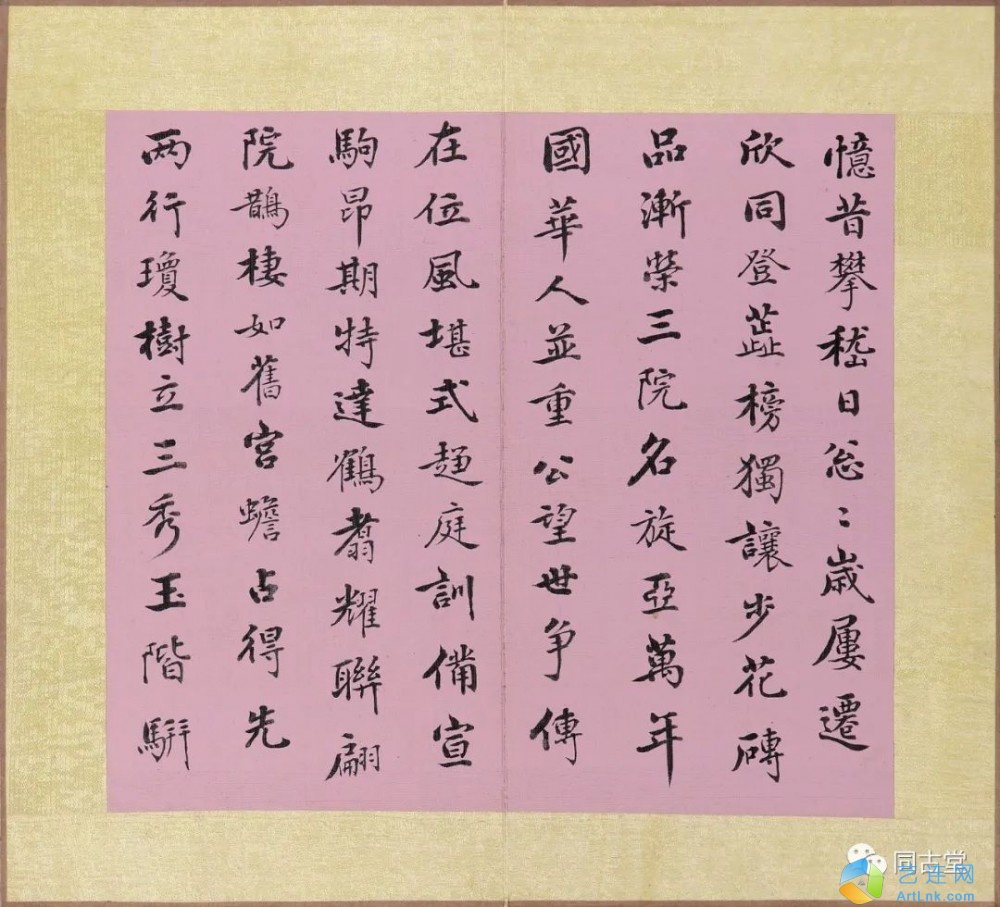 憶昔攀嵇日忩〻歲屢遷
欣同登蕋榜獨讓步花磚
品漸榮三院名旋亞萬年
國華人並重公望世争傳
在位風堪式趨庭訓備宣
駒昂期特達鶴翥耀聯翩
院鵲棲如舊宮蟾占得先
两行瓊樹立三秀玉階騈
同古堂
艺连网
ArtLnk.com